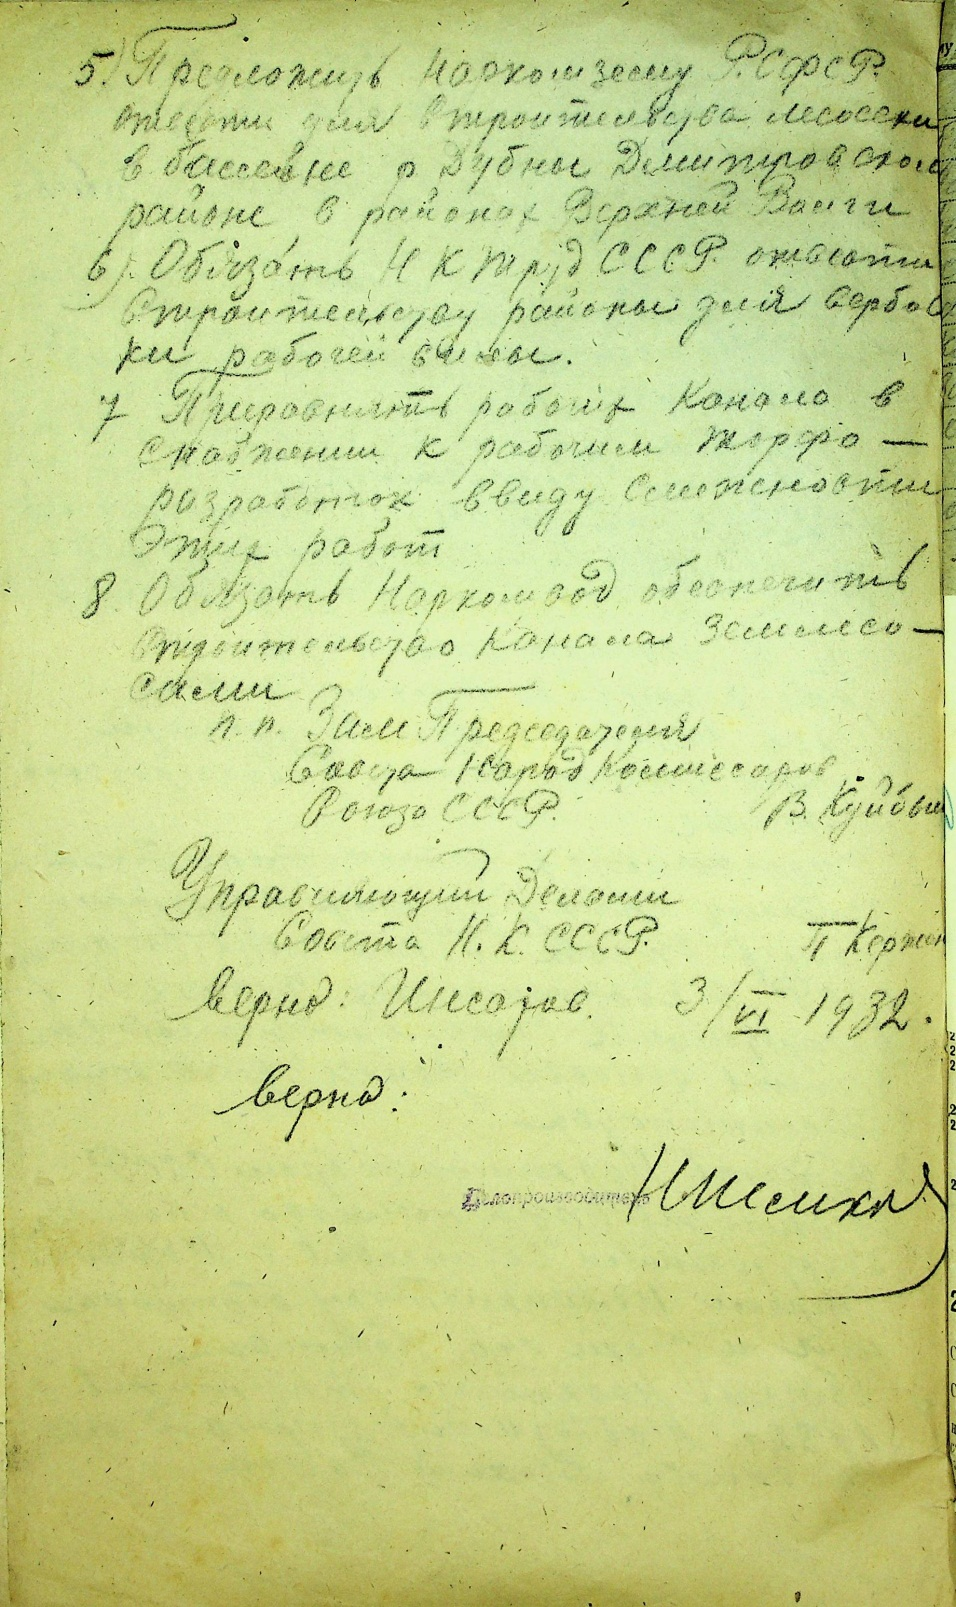 5) Предложить Наркомзему Р.С.Ф.С.Р.
отвести для Строительства лесосеки
в бассейне р Дубны Дмитровском
районе в районах Верхней Волги
6). Обязать Н К Труд СССР. отвести
Строительству районы для вербов
ки рабочей силы.
7 Приравнять рабочих Канала в
снабжении к рабочим торфо —
разработок ввиду смежности
этих работ
8. Обязать Наркомвод обеспечить
Строительство Канала Землесо —
сами
п.п. Зам Председателя
Совета Народ Комиссаров
Союза СССР. В. Куйбыш
Управляющий Делами
Совета Н. К. СССР. П Кержен
Верно: 3/VI 1932.
Верно:
Делопроизводитель